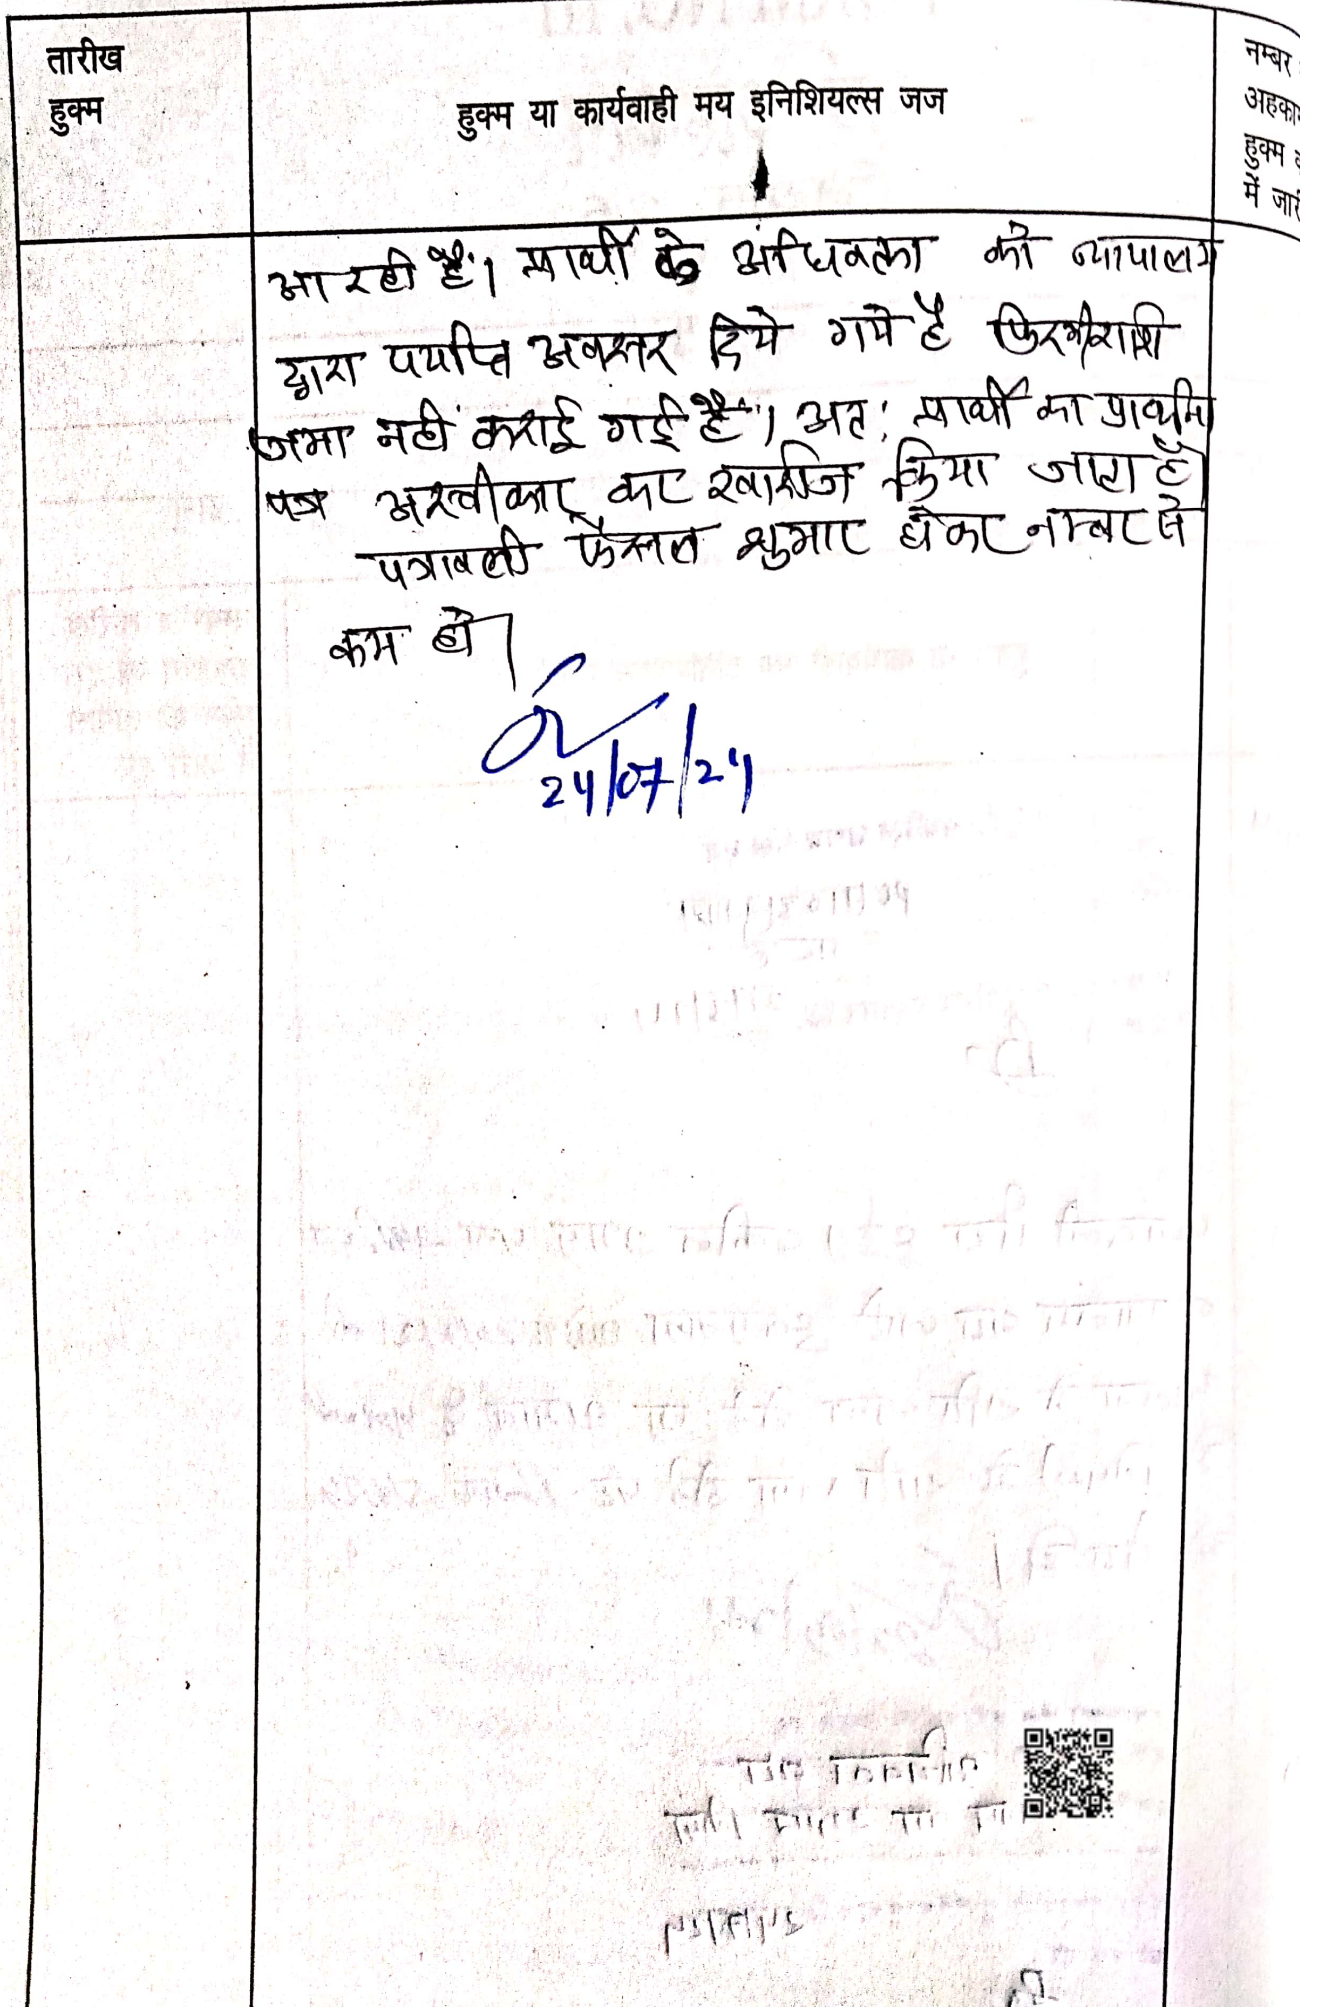 तारीख
हुक्म
हुक्म या कार्यवाही मय इनिशियल्स जज
नम्बर
हुक्म
में जारी
आ रही है। प्रार्थी के अधिवक्ता को न्यायालय
द्वारा पर्याप्त अवसर दिये गये है
जमा नहीं कराई गई है। अतः प्रार्थी का प्रार्थना
पत्र अस्वीकार कर खारीज किया जाता है
पत्रावली फैसल शुमार होकर नम्बर से
कम हो।
24/07/24